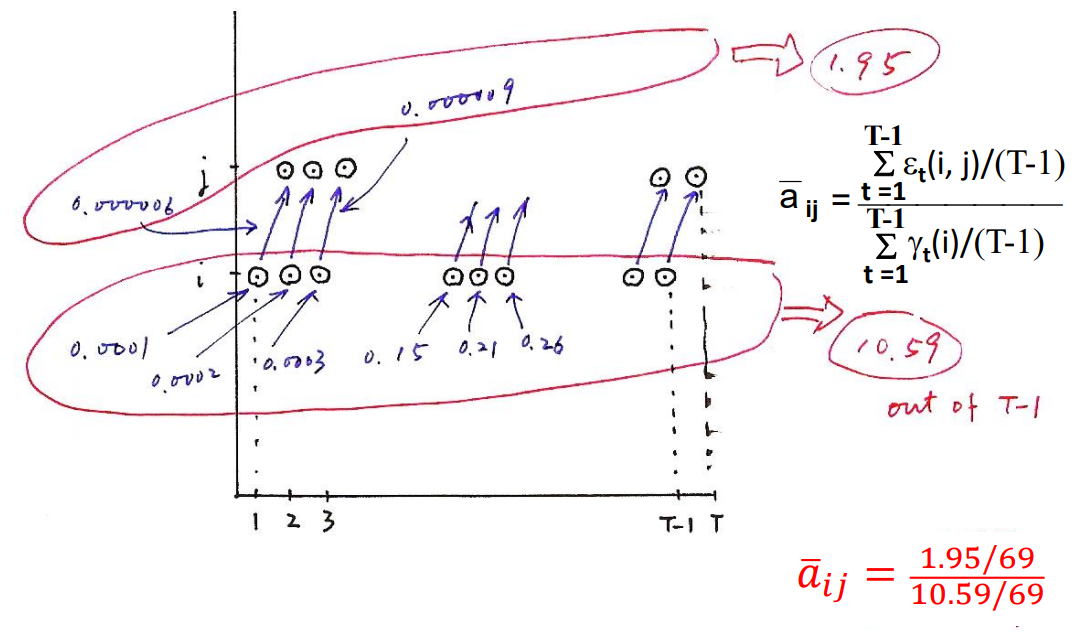 1.95
0.000009
j
0.000006
T-1
Σ εₜ(i, j)/(T-1)
t =1
a̅ ij =
T-1
Σ γₜ(i)/(T-1)
t =1
i
0.0001
0.0002
0.0003
0.15
0.21
0.26
10.59
out of T-1
1 2 3 T-1 T
a̅ij = 1.95/69
10.59/69